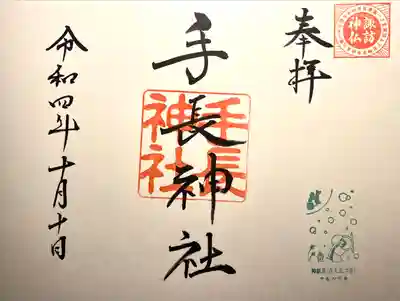 奉拝
諏訪
神仏
手長神社
手長
神社
令和四年十月十日